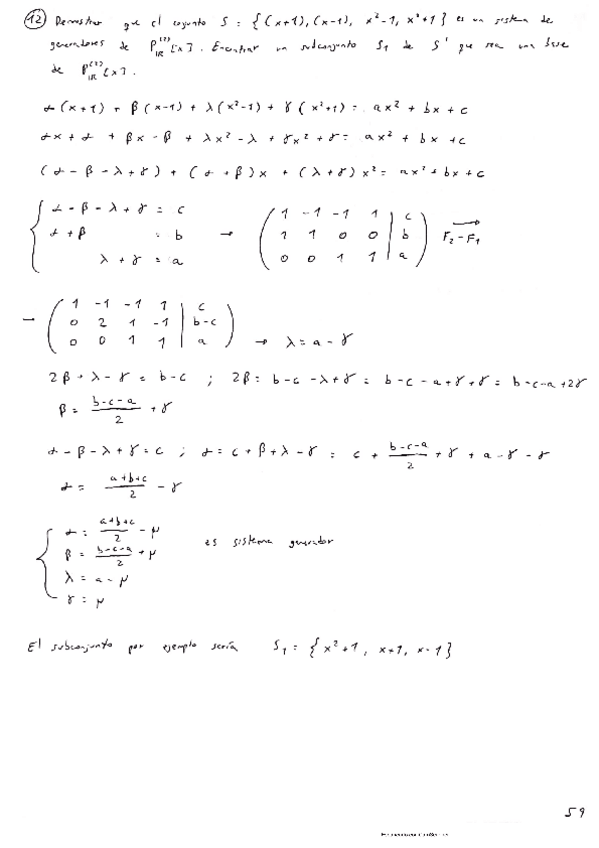 12) Demostrar que el conjunto S = {(x+1), (x-1), x²-1, x²+1} es un sistema de
generadores de P_IR^(2)[x]. Encontrar un subconjunto S₁ de S que sea una base
de P_IR^(2)[x].
α(x+1) + β(x-1) + λ(x²-1) + γ(x²+1) = ax² + bx + c
αx + α + βx - β + λx² - λ + γx² + γ = ax² + bx + c
(α - β - λ + γ) + (α + β)x + (λ + γ)x² = ax² + bx + c
{ α - β - λ + γ = c
α + β = b → ( 1 -1 -1 1 | c
λ + γ = a 1 1 0 0 | b
0 0 1 1 | a ) F₂-F₁ →
→ ( 1 -1 -1 1 | c
0 2 1 -1 | b-c
0 0 1 1 | a ) → λ = a - γ
2β + λ - γ = b-c ; 2β = b-c-λ+γ = b-c-a+γ+γ = b-c-a+2γ
β = (b-c-a)/2 + γ
α - β - λ + γ = c ; α = c + β + λ - γ = c + (b-c-a)/2 + γ + a - γ - γ
α = (a+b+c)/2 - γ
{ α = (a+b+c)/2 - μ
β = (b-c-a)/2 + μ es sistema generador
λ = a - μ
γ = μ
El subconjunto por ejemplo sería S₁ = {x²+1, x+1, x-1}
59